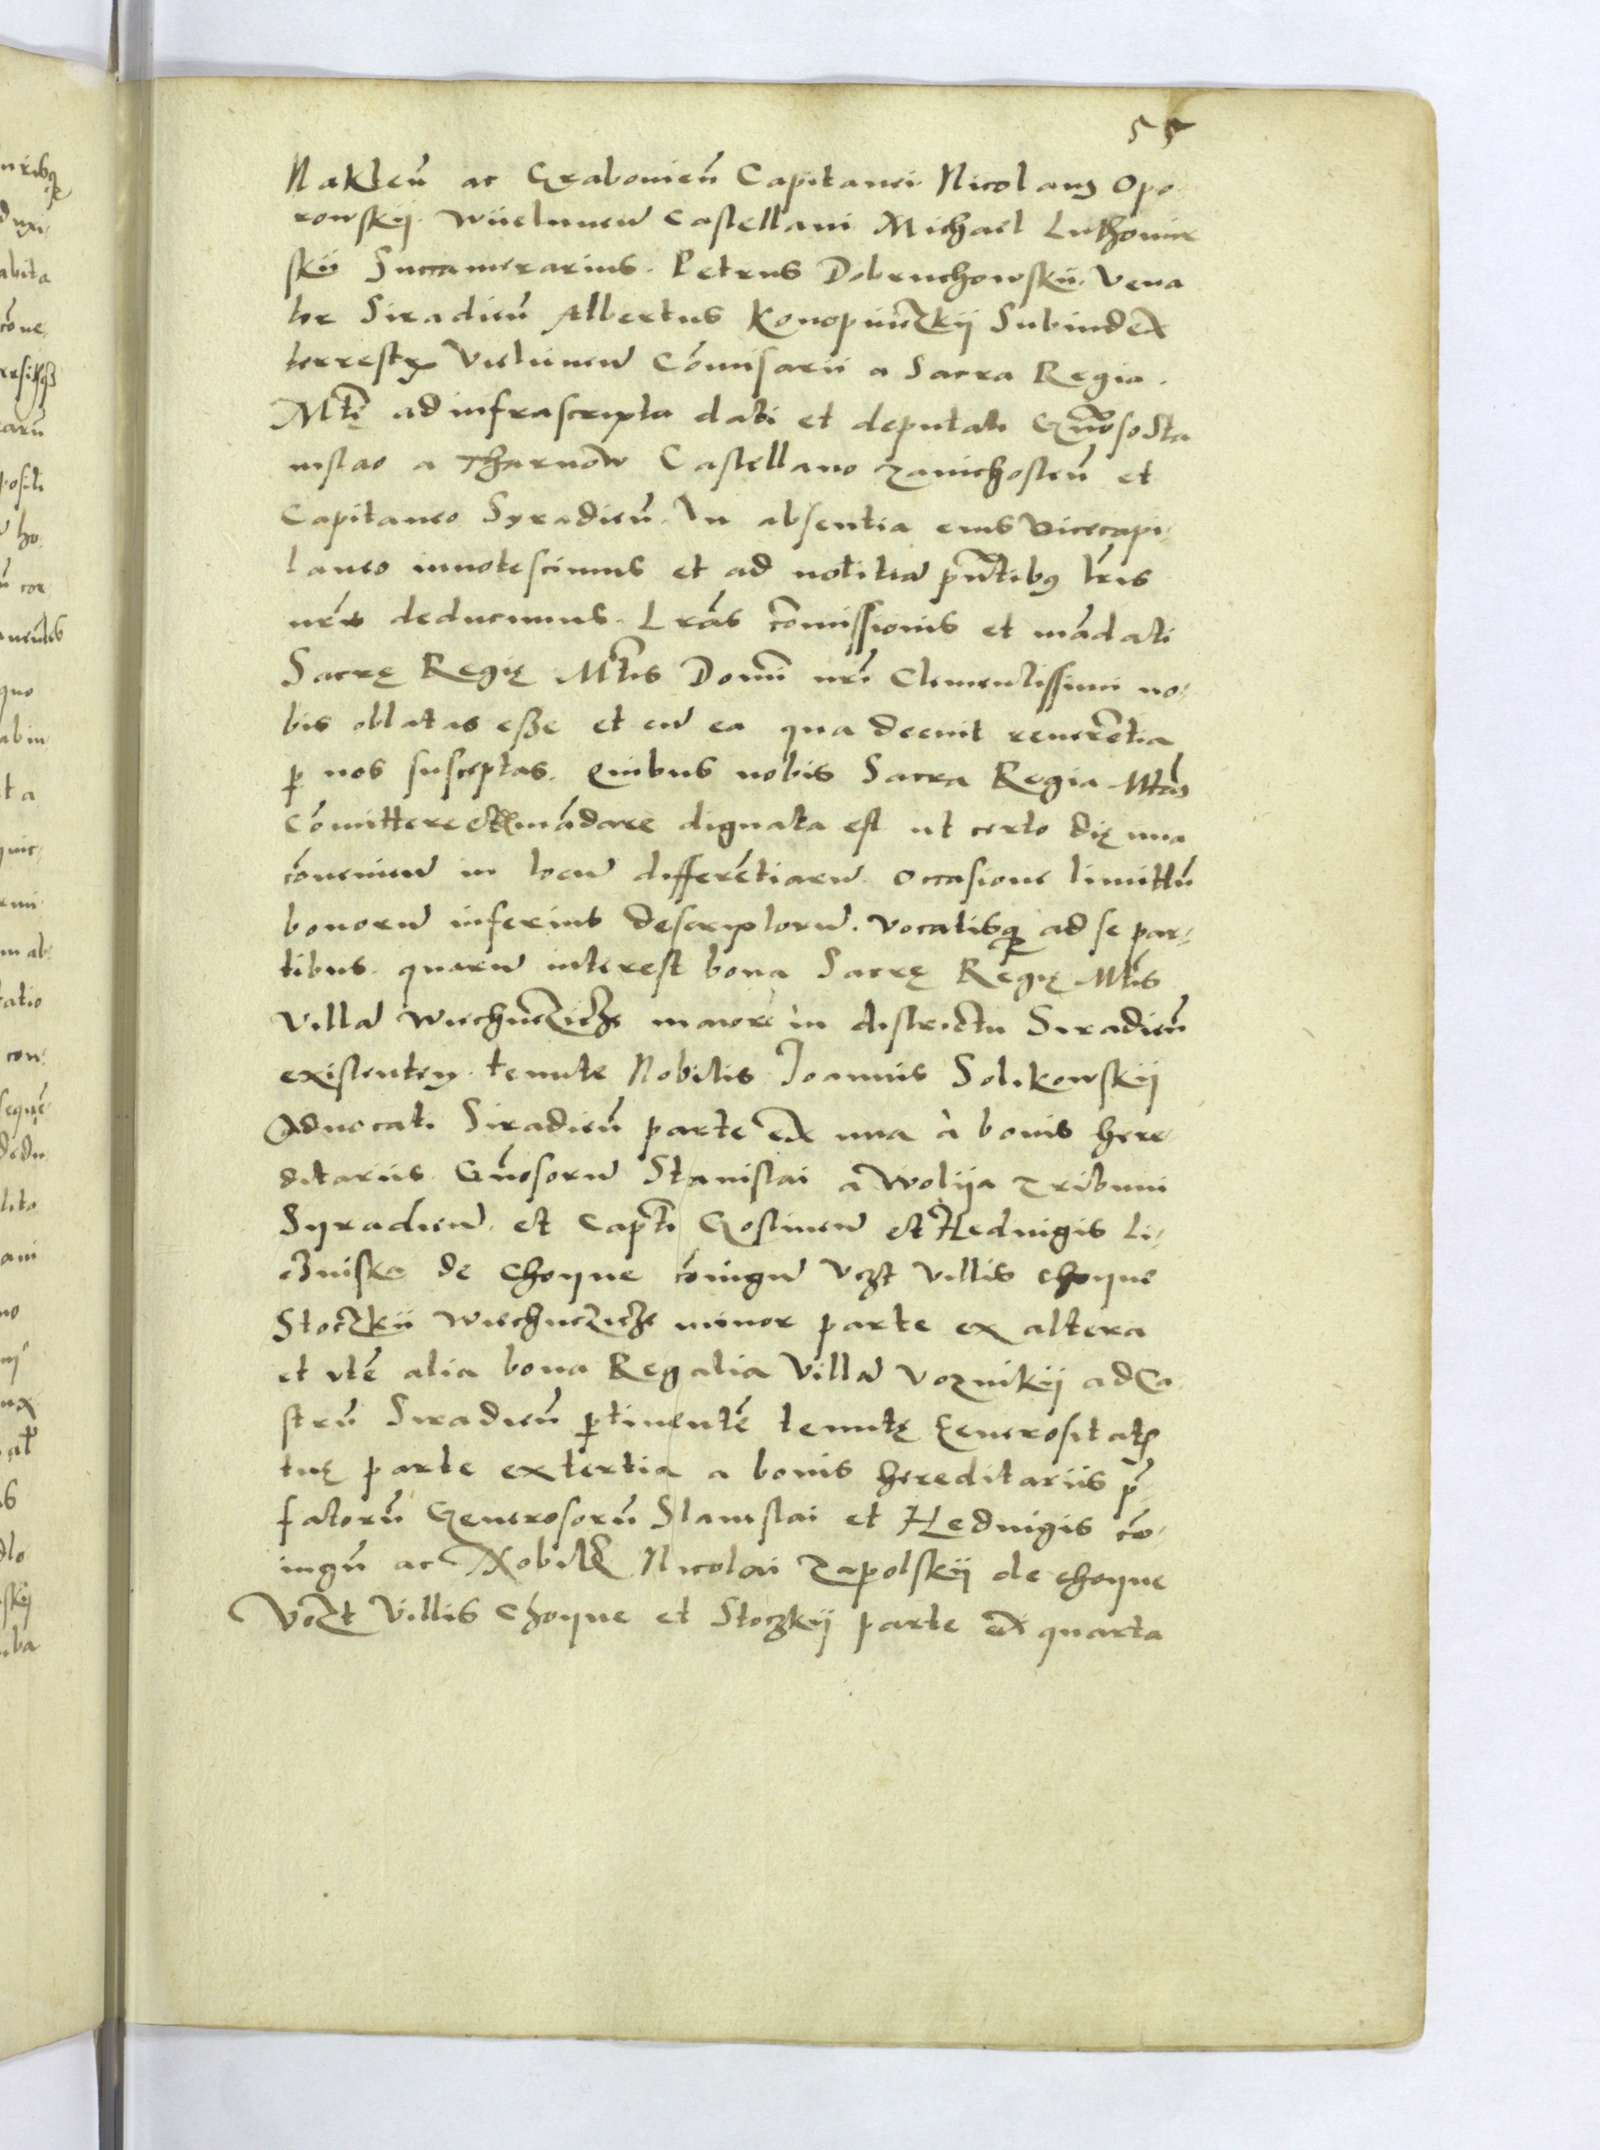 55
Nakleñ ac Grabovieñ Capitanei Nicolaus Opo
rowskij Wiielunen̄ Castellani Michael Luthomir
skii Succamerarius. Petrus Dobruchowskii. Vena
tor Siradieñ Albertus Konopniczkij Subiudex
terrestr̃ Vielunen̄ Com̄isarii a Sacra Regia.
Mtẽ ad infrascripta dati et deputati Gnõso Sta
nislao a Tharnow Castellano zavichosteñ et
Capitaneo Syradieñ. In absentia eius Vicecapi-
taneo innotescimus et ad notitiā pñtibus lr̃is
nr̃is deducimus. Lrãs com̃issionis et mãdati
Sacrę Regię Mtĩs Domĩ nr̃i Clementissimi no-
bis oblatas esse et cū ea qua decuit reverẽtia
p̱ nos susceptas. Quibus nobis Sacra Regia Mtas
Com̃ittere et mãdare dignata est ut certo die una
cõvenien̄ in locū differẽtiarū occasione limitũ
bonorū inferius descriptorū. vocatisq̱ ad se par-
tibus quarū interest bona Sacrę Regię Mtĩs
Villā Wiechuczicze maiorē in districtu Siradieñ
existentem tenute Nobilis Joannis Solikowskij
Advocati Siradieñ parte ex una à bonis here
ditariis Gñosorū Stanislai a Woliia Tribuni
Syradien̄ et Capti Gostinen̄ et Hedvigis Li-
czniska de Choyne cõiugū Vczt Villis Choyne
Stoczkii Wiechuczicze minor parte ex altera
et itẽ alia bona Regalia Villā Voznikij ad Ca
strũ Siradieñ p̱tinentẽ tenutę Generositatis
tuę parte ex tertia a bonis hereditariis p̃
fatorũ Generosorũ Stanislai et Hedvigis cõ-
iugũ ac Nobilis Nicolai Zapolskij de Choyne
Vczt Villis Choyne et Stoczkij parte ex quarta